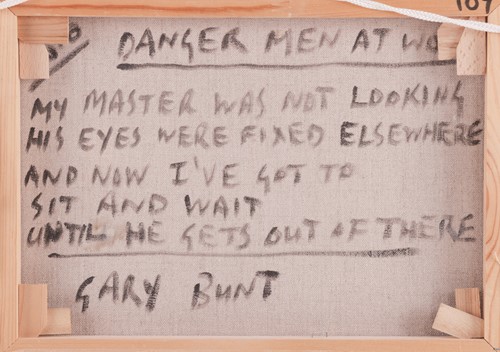 DANGER MEN AT WO
MY MASTER WAS NOT LOOKING
HIS EYES WERE FIXED ELSEWHERE
AND NOW I'VE GOT TO
SIT AND WAIT
UNTIL HE GETS OUT OF THERE
GARY BUNT